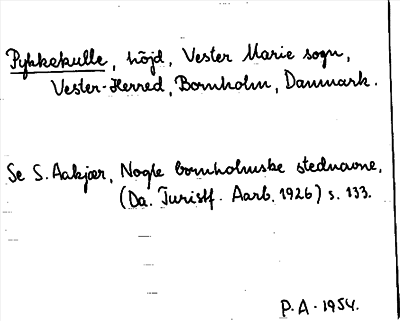 Pykkekulle, höjd, Vester Marie sogn,
Vester-Herred, Bornholm, Danmark.
Se S. Aakjær, Nogle bornholmske stednavne,
(Da. Turistf. Aarb. 1926) s. 133.
P.A. 1954.